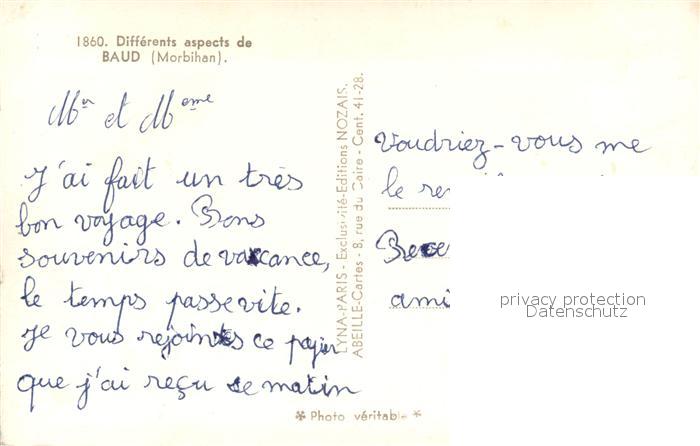 1860. Différents aspects de
BAUD (Morbihan).
Mr et Mme
J'ai fait un très
bon voyage. Bons
souvenirs de vacance,
le temps passevite.
Je vous rejoints ce papier
que j'ai reçu ce matin
LYNA-PARIS - Exclusivité-Editions NOZAIS.
ABEILLE-Cartes - 8, rue du Caire - Cent. 41-28.
Voudriez-vous me
le
ami
privacy protection
Datenschutz
* Photo véritable *